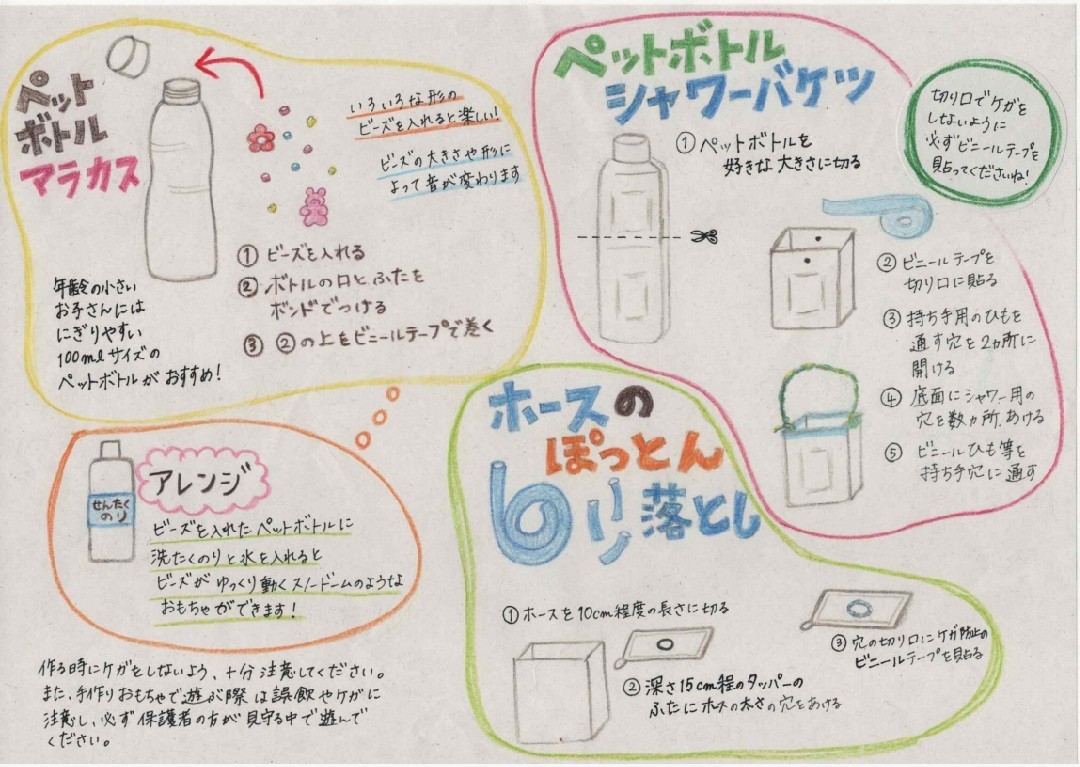 ペット
ボトル
マラカス
いろいろな形の
ビーズを入れると楽しい!
ビーズの大きさや形に
よって音が変わります
① ビーズを入れる
② ボトルの口とふたを
ボンドでつける
③ ②の上をビニールテープで巻く
年齢の小さい
お子さんには
にぎりやすい
100mlサイズの
ペットボトルがおすすめ!
せんたく
のり
アレンジ
ビーズを入れたペットボトルに
洗たくのりと水を入れると
ビーズがゆっくり動くスノードームのような
おもちゃができます!
作る時にケガをしないよう、十分注意してください。
また、手作りおもちゃで遊ぶ際は誤飲やケガに
注意し、必ず保護者の方が見守る中で遊んで
ください。
ペットボトル
シャワーバケツ
切り口でケガを
しないように
必ずビニールテープを
貼ってくださいね!
① ペットボトルを
好きな大きさに切る
② ビニールテープを
切り口に貼る
③ 持ち手用のひもを
通す穴を2ヵ所に
開ける
④ 底面にシャワー用の
穴を数ヵ所、あける
⑤ ビニールひも等を
持ち手穴に通す
ホースの
ぽっとん
落とし
① ホースを10cm程度の長さに切る
② 深さ15cm程のタッパーの
ふたにホースの太さの穴をあける
③ 穴の切り口にケガ防止の
ビニールテープを貼る